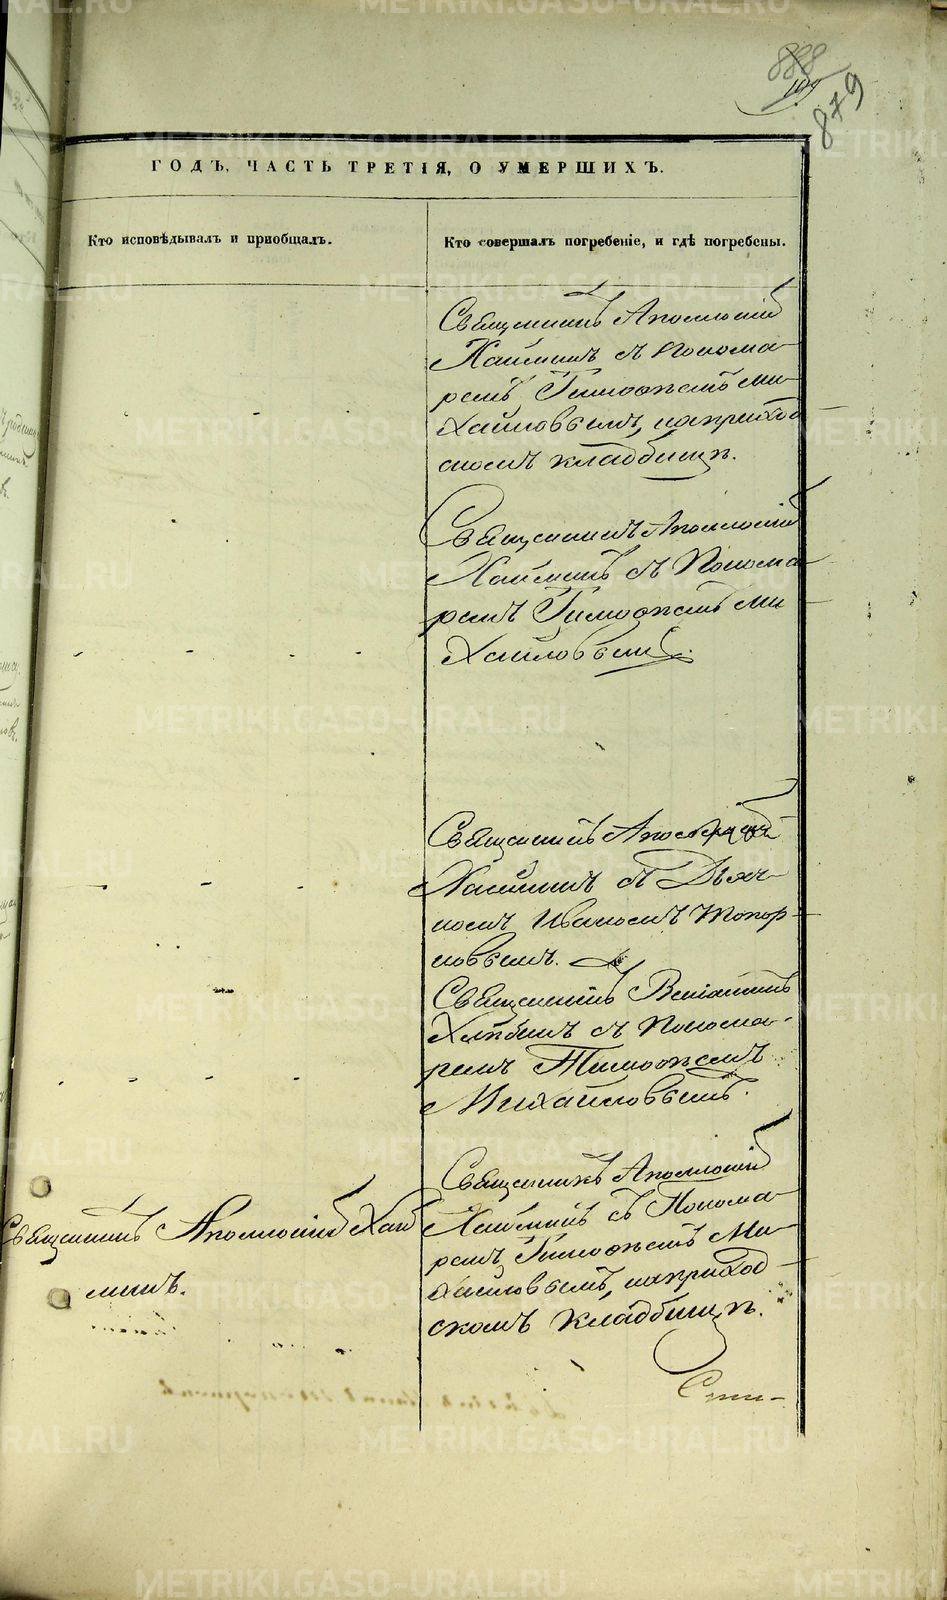 888
879
ГОДЪ, ЧАСТЬ ТРЕТІЯ, О УМЕРШИХЪ.
Кто исповѣдывалъ и приобщалъ.
Кто совершалъ погребеніе, и гдѣ погребены.
Священникъ Аполлоній
Хайминъ съ Понома-
ремъ Тимоѳеемъ Ми-
хайловымъ, на приход
скомъ кладбищѣ.
Священникъ Аполлоній
Хайминъ съ Понома-
ремъ Тимоѳеемъ Ми
хайловымъ.
Священникъ Аполлоній
Хайминъ съ Дьяч-
комъ Иваномъ Топор-
ковымъ.
Священникъ Веніаминъ
Хлѣбинъ съ Понома-
ремъ Тимоѳеемъ
Михайловымъ.
Священникъ Аполлоній Хай
минъ.
Священникъ Аполлоній
Хайминъ съ Понома-
ремъ Тимоѳеемъ Ми-
хайловымъ, на приход
скомъ кладбищѣ.
METRIKI.GASO-URAL.RU